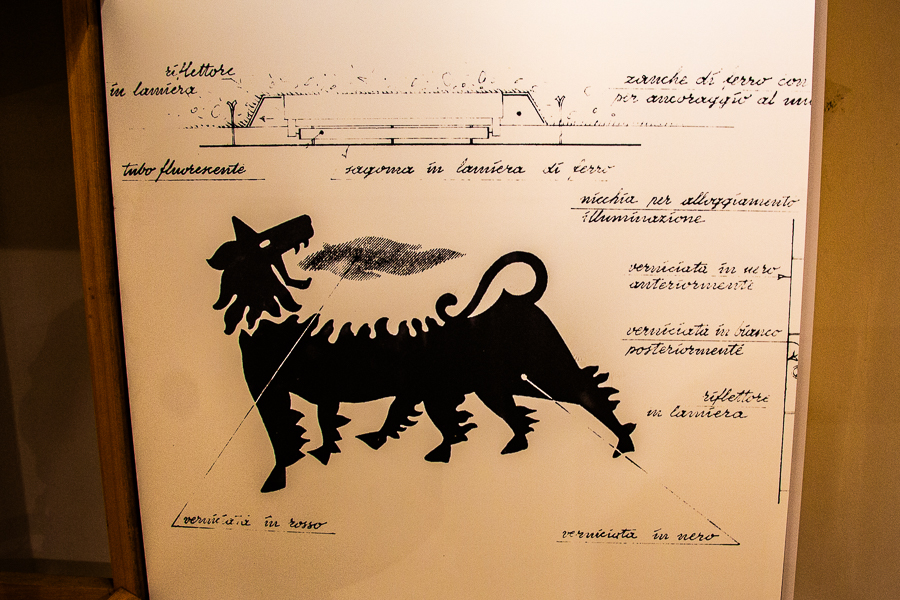 riflettore
in lamiera
zanche di ferro con
per ancoraggio al mu
tubo fluorescente
sagoma in lamiera di ferro
nicchia per alloggiamento
illuminazione
verniciata in nero
anteriormente
verniciata in bianco
posteriormente
riflettore
in lamiera
verniciata in rosso
verniciata in nero